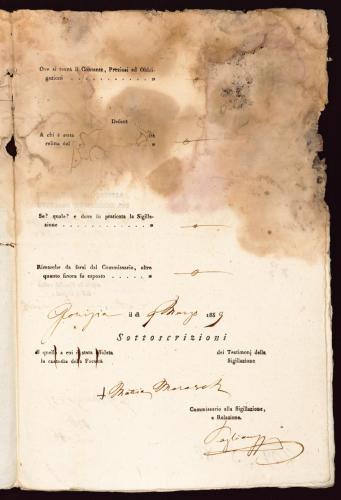 Ove si trova il Contante, Preziosi ed Obbli-
gazioni
Defont
A chi è stata
relitta del
Se? quale? e dove fu praticata la Sigilla-
zione
Rimarche da farsi dal Commissario, oltre
quanto finora fu esposto
Gorizia il dì Marzo 1859
Sottoscrizioni
di quella a cui è stata
la custodia della Facoltà
dei Testimonj della
Sigillazione
+ Maria
Commissario alla Sigillazione,
e Relazione.